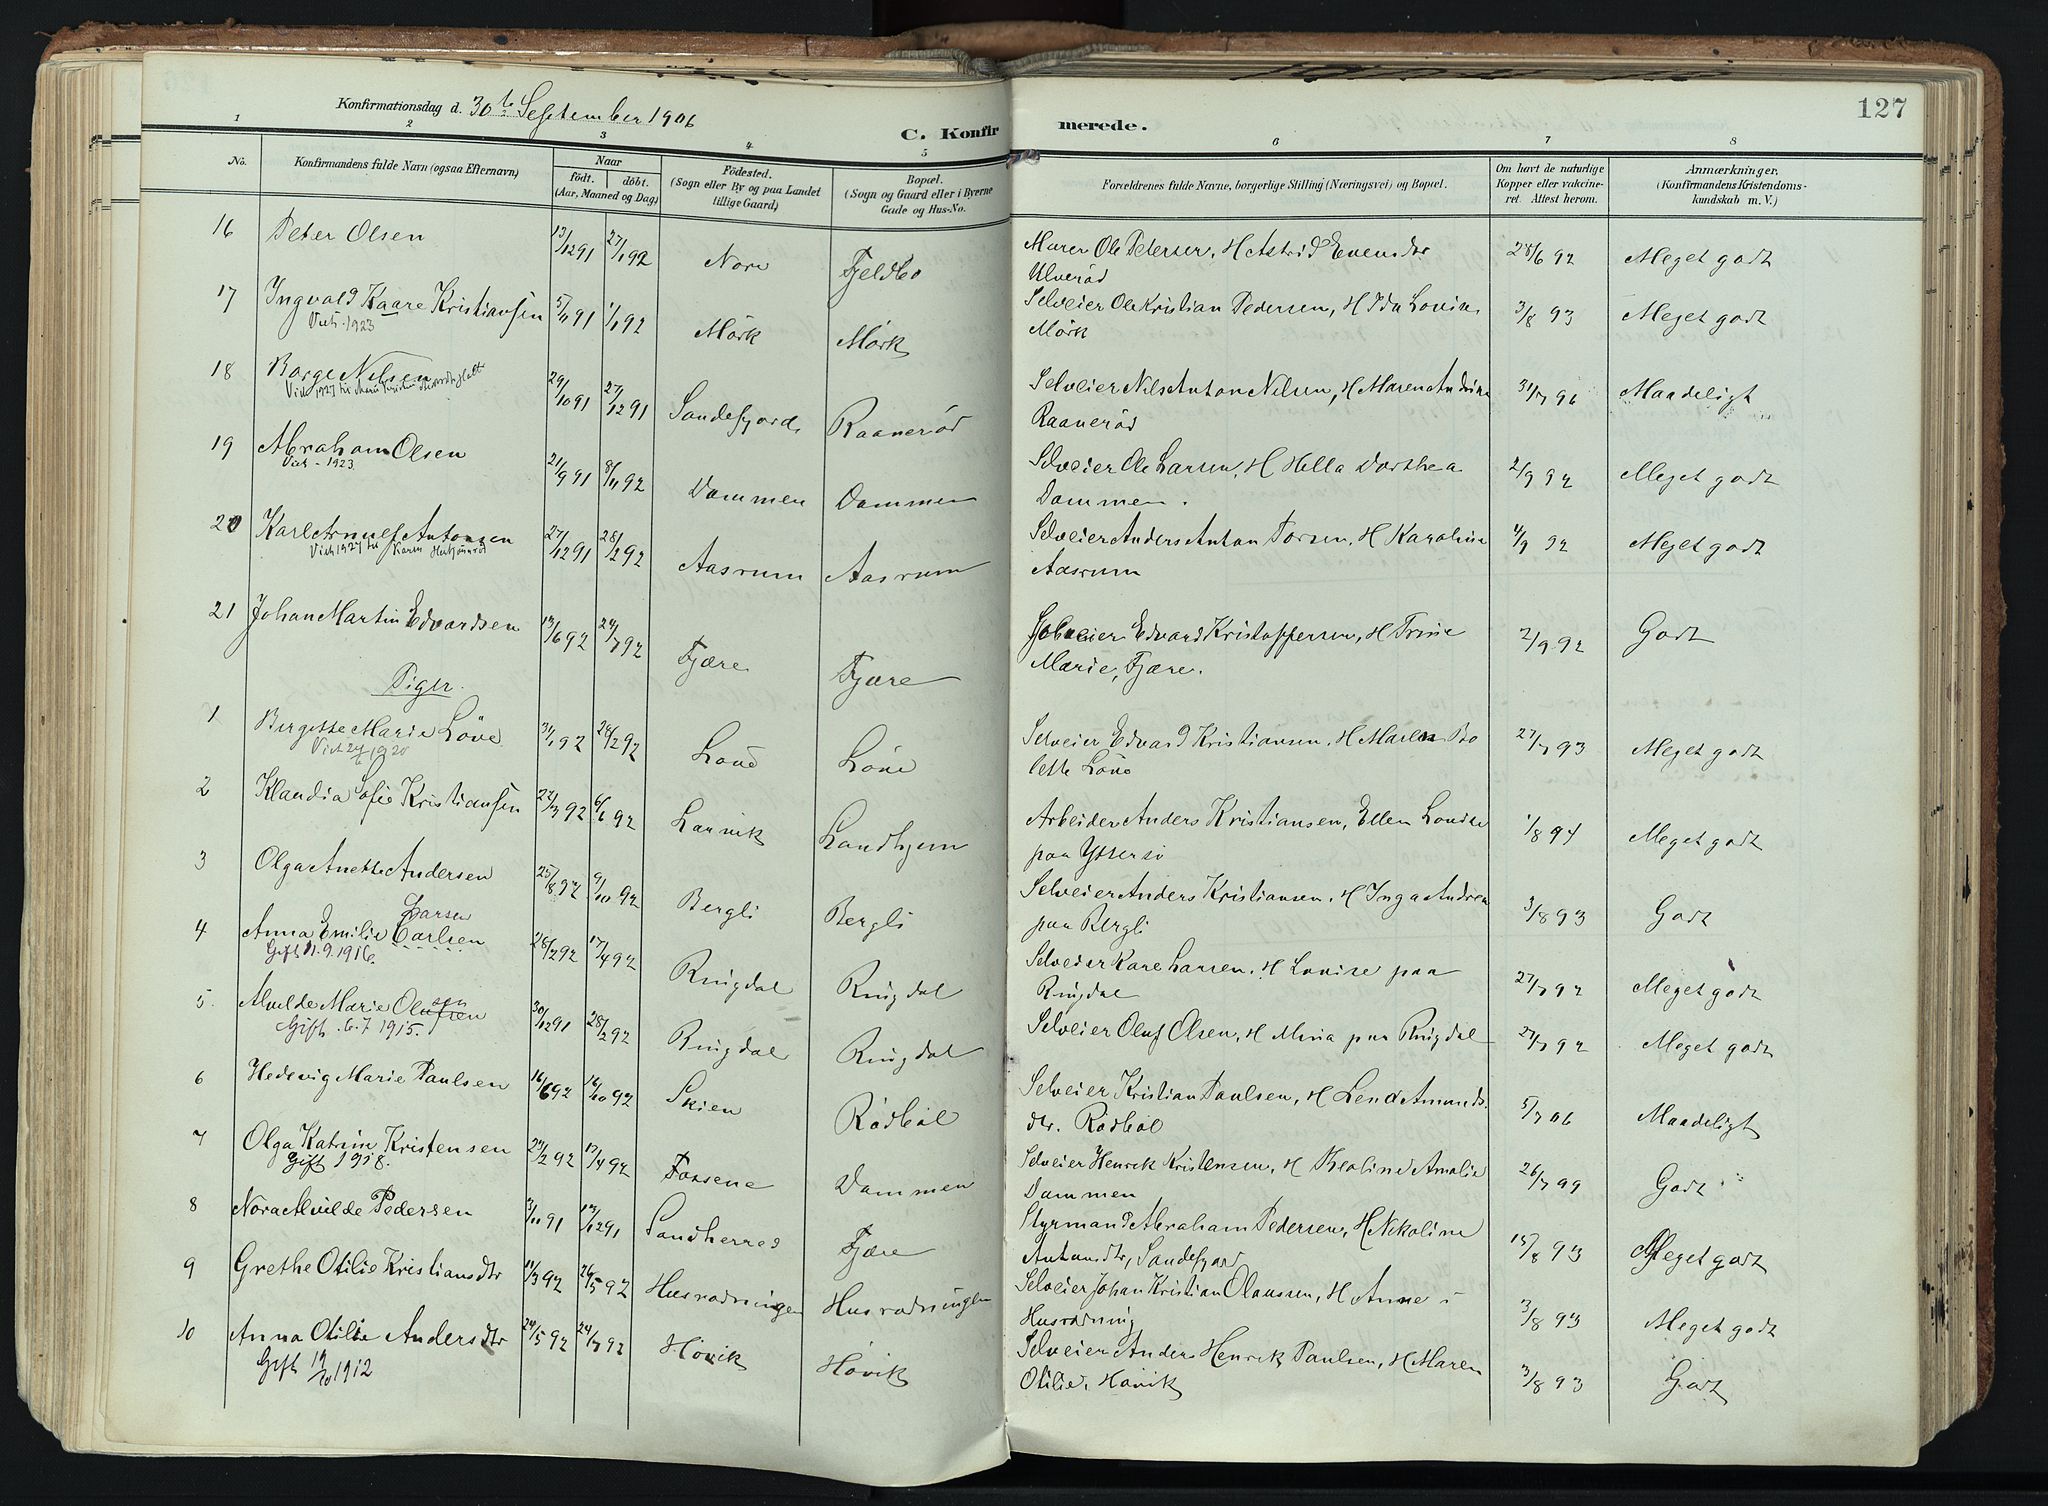 127
Konfirmationsdag d. 30te September 1906
C. Konfirmerede.
1 2 3 4 5 6 7 8
No. Konfirmandens fulde Navn (ogsaa Efternavn) Naar födt. döbt. (Aar, Maaned og Dag) Födested. (Sogn eller By og paa Landet tillige Gaard) Bopæl. (Sogn og Gaard eller i Byerne Gade og Hus-No. Forældrenes fulde Navne, borgerlige Stilling (Næringsvei) og Bopæl. Om havt de naturlige Kopper eller vakcineret. Attest herom. Anmærkninger. (Konfirmandens Kristendomskundskab m. V.)
16 Peter Olsen 13/12 91 27/1 92 Nore Fjeldbo Murer Ole Petersen, H Astrid Evensdtr 28/6 92 Meget godt
Ulverød
17 Ingvald Kaare Kristiansen 5/11 91 1/1 92 Mörk Mörk Selveier Ole Kristian Pedersen, H Ida Lovise 3/8 93 Meget godt
Viet 1923 Mörk
18 Borge Nilsen 29/10 91 27/12 91 Sandefjord Raanerød Selveier Nils Anton Nilsen, H Maren Andrine 31/7 96 Maadeligt
Viet 1927 til Raanerød
19 Abraham Olsen 21/9 91 8/11 92 Dammen Dammen Selveier Ole Larsen, H Hella Dorthea 2/9 92 Meget godt
Viet - 1923 Dammen.
20 Karl Arnulf Antonsen 27/12 91 28/2 92 Aasrum Aasrum Selveier Anders Anton Torsen, H Karoline 4/9 92 Meget godt
Viet 1927 til Karen Aasrum
21 Johan Martin Edvardsen 13/6 92 24/7 92 Fjære Fjære Selveier Edvard Kristoffersen, H Trine 2/9 92 Godt
Marie, Fjære.
Piger.
1 Bergette Marie Löve 31/1 92 28/2 92 Löve Löve Selveier Edvard Kristiansen, H Maren Bo 27/7 93 Meget godt
Viet 24/6 1920 lette Löve
2 Klaudia Sofie Kristiansen 22/3 92 6/6 92 Larvik Landhjem Arbeider Anders Kristiansen, Ellen Lovise 1/8 94 Meget godt
paa Yttersö
3 Olga Anette Andersen 25/8 92 9/10 92 Bergli Bergli Selveier Anders Kristiansen, H Inga Andrea 3/8 93 Godt
paa Bergli
Larsen
4 Anna Emilie Carlsen 28/2 92 17/4 92 Ringdal Ringdal Selveier Kare Larsen, H Lovise paa 27/7 92 Meget godt
Gift 11.9.1916. Ringdal
5. Alvilde Marie Olufsen 30/12 91 28/2 92 Ringdal Ringdal Selveier Oluf Olsen, H Mina paa Ringdal 27/7 92 Meget godt
Gift .6.7 1915.
6 Hedevig Marie Paulsen 16/6 92 16/10 92 Skien Rödböl Selveier Kristian Paulsen, H Lene Amunds 5/7 06 Maadeligt
dtr. Rödböl
7 Olga Katrine Kristensen 24/2 92 17/4 92 Fossene Dammen Selveier Henrik Kristensen, H Amalie 26/7 99 Godt
Gift 1918. Dammen
8 Nora Alvilde Pedersen 3/11 91 13/12 91 Sandherred Fjære Styrmand Abraham Pedersen, H Nikoline 15/8 93 Meget godt
Antonsdtr, Sandefjord
9 Grethe Otilie Kristiansdtr 11/3 92 26/5 92 Husrødningen Husrødningen Selveier Johan Kristian Olaussen, H Anne i 3/8 93 Meget godt
Husrødning
10 Anna Otilie Andersdtr 24/5 92 24/7 92 Hövik Hövik Selveier Anders Henrik Paulsen, H Maren 3/8 93 Godt
Gift 19/10 1912 Otilie, Hövik